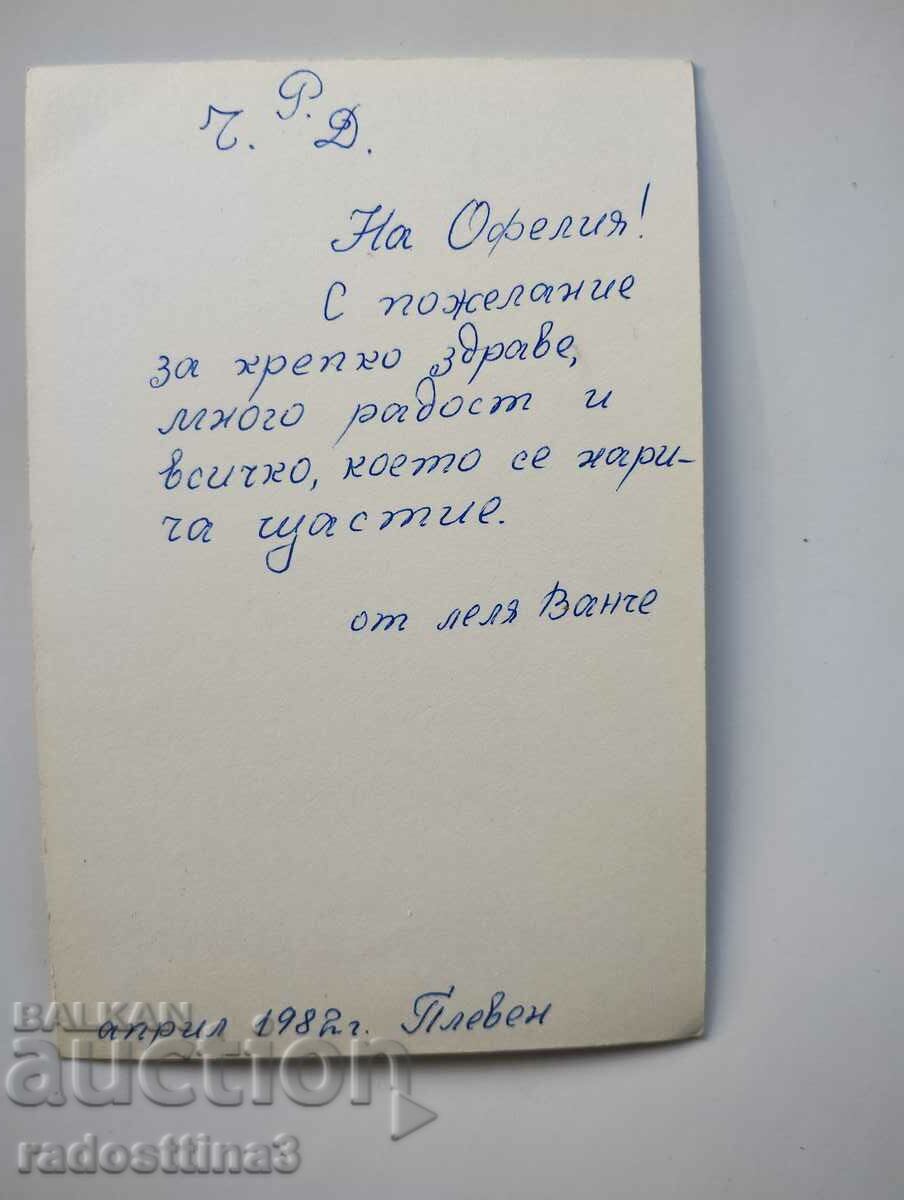 Ч. Р. Д.
На Офелия!
С пожелание
за крепко здраве,
много радост и
всичко, което се нари-
ча щастие.
от леля Ванче
април 1982г. Плевен
BALKAN
auction
radosttina3